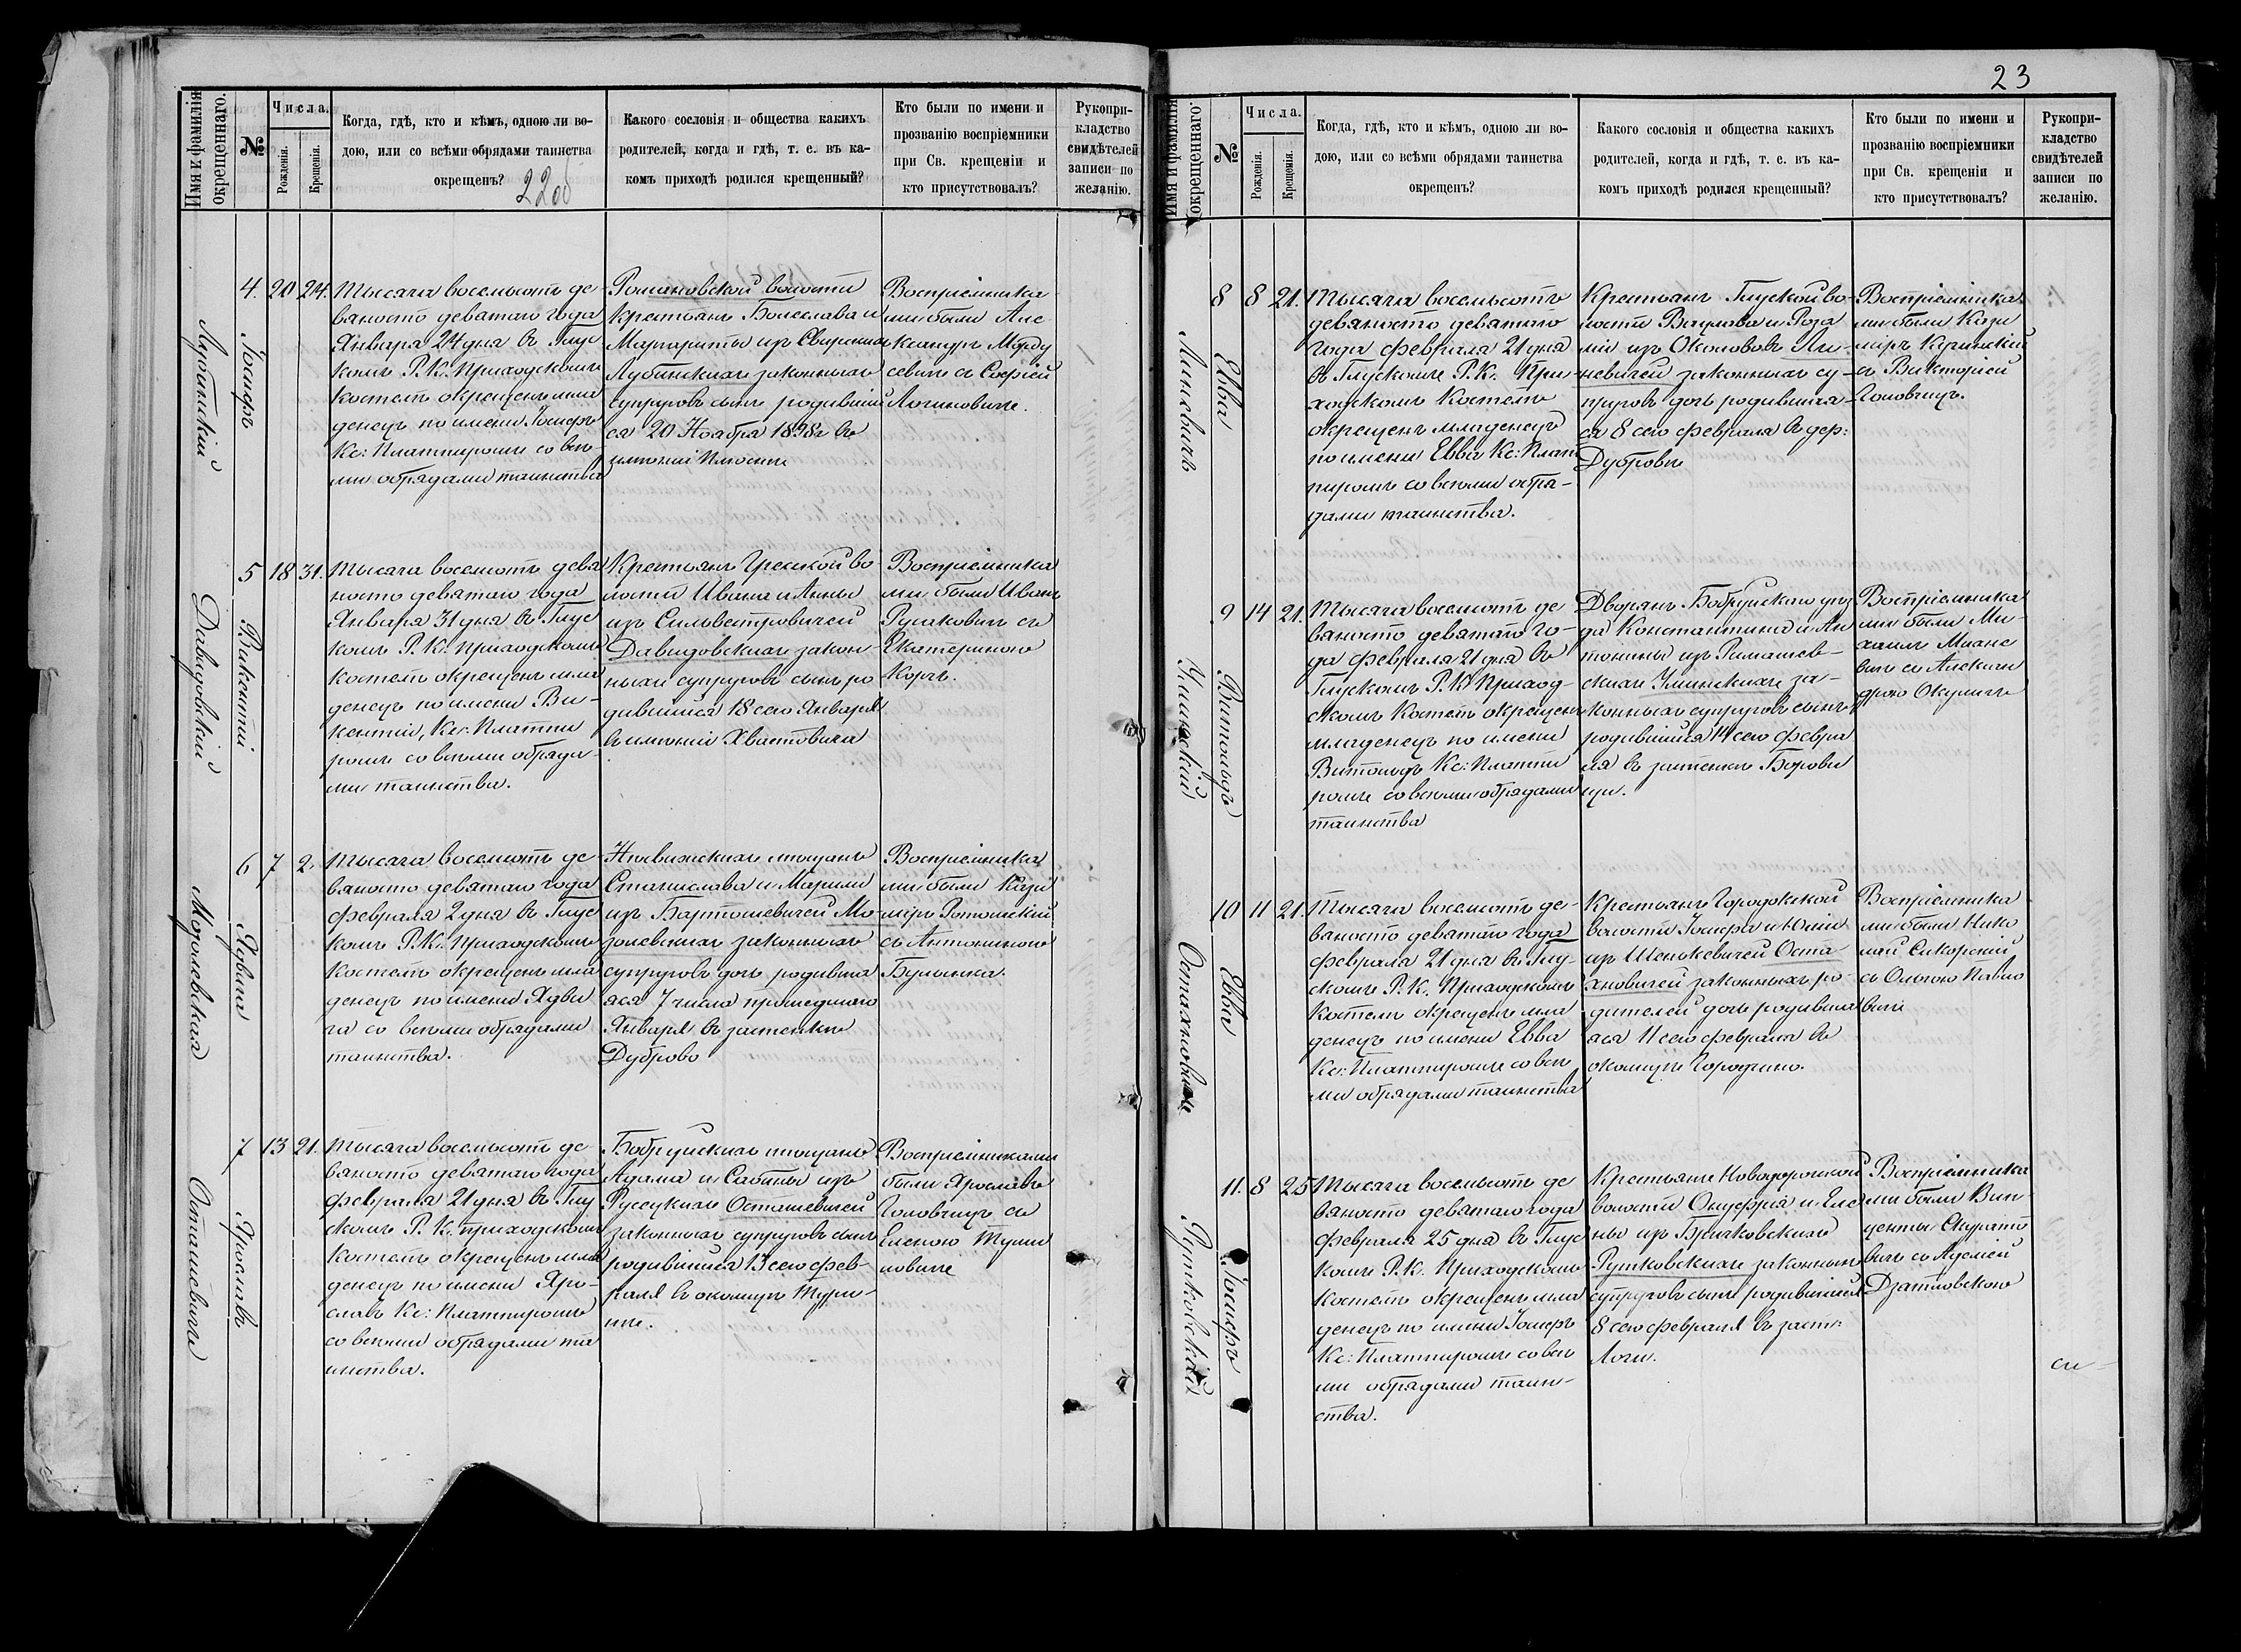 Имя и фамилія
окрещеннаго.
№
Числа.
Рожденія.
Крещенія.
Когда, гдѣ, кто и кѣмъ, одною ли во-
дою, или со всѣми обрядами таинства
окрещенъ?
22об
Какого сословія и общества какихъ
родителей, когда и гдѣ, т. е. въ ка-
комъ приходѣ родился крещенный?
Кто были по имени и
прозванію воспріемники
при Св. крещеніи и
кто присутствовалъ?
Рукопри-
кладство
свидѣтелей
записи по
желанію.
Лубинскій
Іосифъ
4. 20 24.
Тысяча восемьсотъ де-
вяносто девятаго года
Января 24 дня въ Глус
комъ Р. К. Приходскомъ
костелѣ окрещенъ мла
денецъ по имени Іосифъ
Кс: Платпиромъ со всѣ-
ми обрядами таинства
Романовской волости
Крестьянъ Болеслава и
Маргариты изъ
Лубинскихъ законныхъ
супруговъ сынъ родившій
ся 20 Ноября 1898г въ
имѣніи
Воспріемника-
ми были Але
ксандръ
съ Софіей
Давидовскій
Викентій
5 18 31.
Тысяча восемьсотъ девя
носто девятаго года
Января 31 дня въ Глус
комъ Р. К. Приходскомъ
костелѣ окрещенъ мла
денецъ по имени Ви-
кентій, Кс: Платпи
ромъ со всѣми обряда-
ми таинства.
Крестьянъ Грескій во
лости Ивана и Анны
изъ Сильвестровичей
Давидовскихъ закон-
ныхъ супруговъ сынъ ро
дившійся 18 сего Января
въ имѣніи Хвастовича
Воспріемника
ми были Иванъ
Русаковичъ съ
Екатериною
Коржъ.
Морзелевская
Ядвига
6 7 2.
Тысяча восемьсотъ де-
вяносто девятаго года
февраля 2 дня въ Глус
комъ Р. К. Приходскомъ
костелѣ окрещенъ мла
денецъ по имени Ядви
га со всѣми обрядами
таинства.
мѣщанъ
Станислава и Маріи
изъ Бартошевичей Мо-
золевскихъ законныхъ
супруговъ дочь родивша
яся 7 числа прошедшаго
Января въ застѣнкѣ
Дуброво
Воспріемника
ми были Кази
міръ
съ Антониною
Осташевичъ
Ярославъ
7 13 21.
Тысяча восемьсотъ де
вяносто девятаго года
февраля 21 дня въ Глу
скомъ Р. К. приходскомъ
костелѣ окрещенъ мла
денецъ по имени Яро-
славъ Кс: Платпиромъ
со всѣми обрядами та
инства.
Бобруйскихъ мѣщанъ
Адама и Сабины изъ
Русецкихъ Осташевичей
законныхъ супруговъ сынъ
родившійся 13 сего фев-
раля въ околицѣ Тури-
не.
Воспріемниками
были Ярославъ
Головчицъ съ
Еленою
23
Имя и фамилія
окрещеннаго.
№
Числа.
Рожденія.
Крещенія.
Когда, гдѣ, кто и кѣмъ, одною ли во-
дою, или со всѣми обрядами таинства
окрещенъ?
Какого сословія и общества какихъ
родителей, когда и гдѣ, т. е. въ ка-
комъ приходѣ родился крещенный?
Кто были по имени и
прозванію воспріемники
при Св. крещеніи и
кто присутствовалъ?
Рукопри-
кладство
свидѣтелей
записи по
желанію.
Линевичъ
Евва
8 8 21.
Тысяча восемьсотъ
девяносто девятаго
года февраля 21 дня
въ Глускомъ Р. К. При-
ходскомъ Костелѣ
окрещенъ младенецъ
по имени Евва Кс: Плат
пиромъ со всѣми обря-
дами таинства.
Крестьянъ Глуской во-
лости Вацлава и Роза
ліи изъ Околововъ Ли-
невичей законныхъ су-
пруговъ дочь родившая-
ся 8 сего февраля въ дер:
Дубровѣ
Воспріемника-
ми были Кази
міръ
съ Викторіей
Головчицъ.
Уминскій
Витольдъ
9 14 21.
Тысяча восемьсотъ де
вяносто девятаго го-
да февраля 21 дня въ
Глускомъ Р. К. Приход-
скомъ Костелѣ окрещенъ
младенецъ по имени
Витольдъ Кс: Платпи
ромъ со всѣми обрядами
таинства
Дворянъ Бобруйскаго уѣз
да Константина и Ан
тонины изъ Римашев-
скихъ Уминскихъ за-
конныхъ супруговъ сынъ
родившійся 14 сего февра
ля въ застенкѣ Борови
щи.
Воспріемника
ми были Ми-
хаилъ
съ Алексан
дрою Окуличъ
Остахновичъ
Евва
10 11 21.
Тысяча восемьсотъ де-
вяносто девятаго года
февраля 21 дня въ Глу-
скомъ Р. К. Приходскомъ
Костелѣ окрещенъ мла
денецъ по имени Евва
Кс: Платпиромъ со всѣ
ми обрядами таинства
Крестьянъ Городокской
волости Іосифа и Юліи
изъ Шенькевичей Оста-
хновичей законныхъ ро-
дителей дочь родивша
яся 11 сего февраля въ
околицѣ Городчино.
Воспріемника
ми были Нико
лай Сикорскій
съ Ольгою Павло
вичъ
Рутковскій
Іосифъ
11. 8 25
Тысяча восемьсотъ де
вяносто девятаго года
февраля 25 дня въ Глус
комъ Р. К. Приходскомъ
костелѣ окрещенъ мла
денецъ по имени Іосифъ
Кс: Платпиромъ со всѣ
ми обрядами таин-
ства.
Крестьянъ Новодорожской
волости Онуфрія и Еле
ны изъ
Рутковскихъ законныхъ
супруговъ сынъ родившійся
8 сего февраля въ заст:
Воспріемника
ми были Вин-
центы Скурато
вичъ съ
Дзятловскою